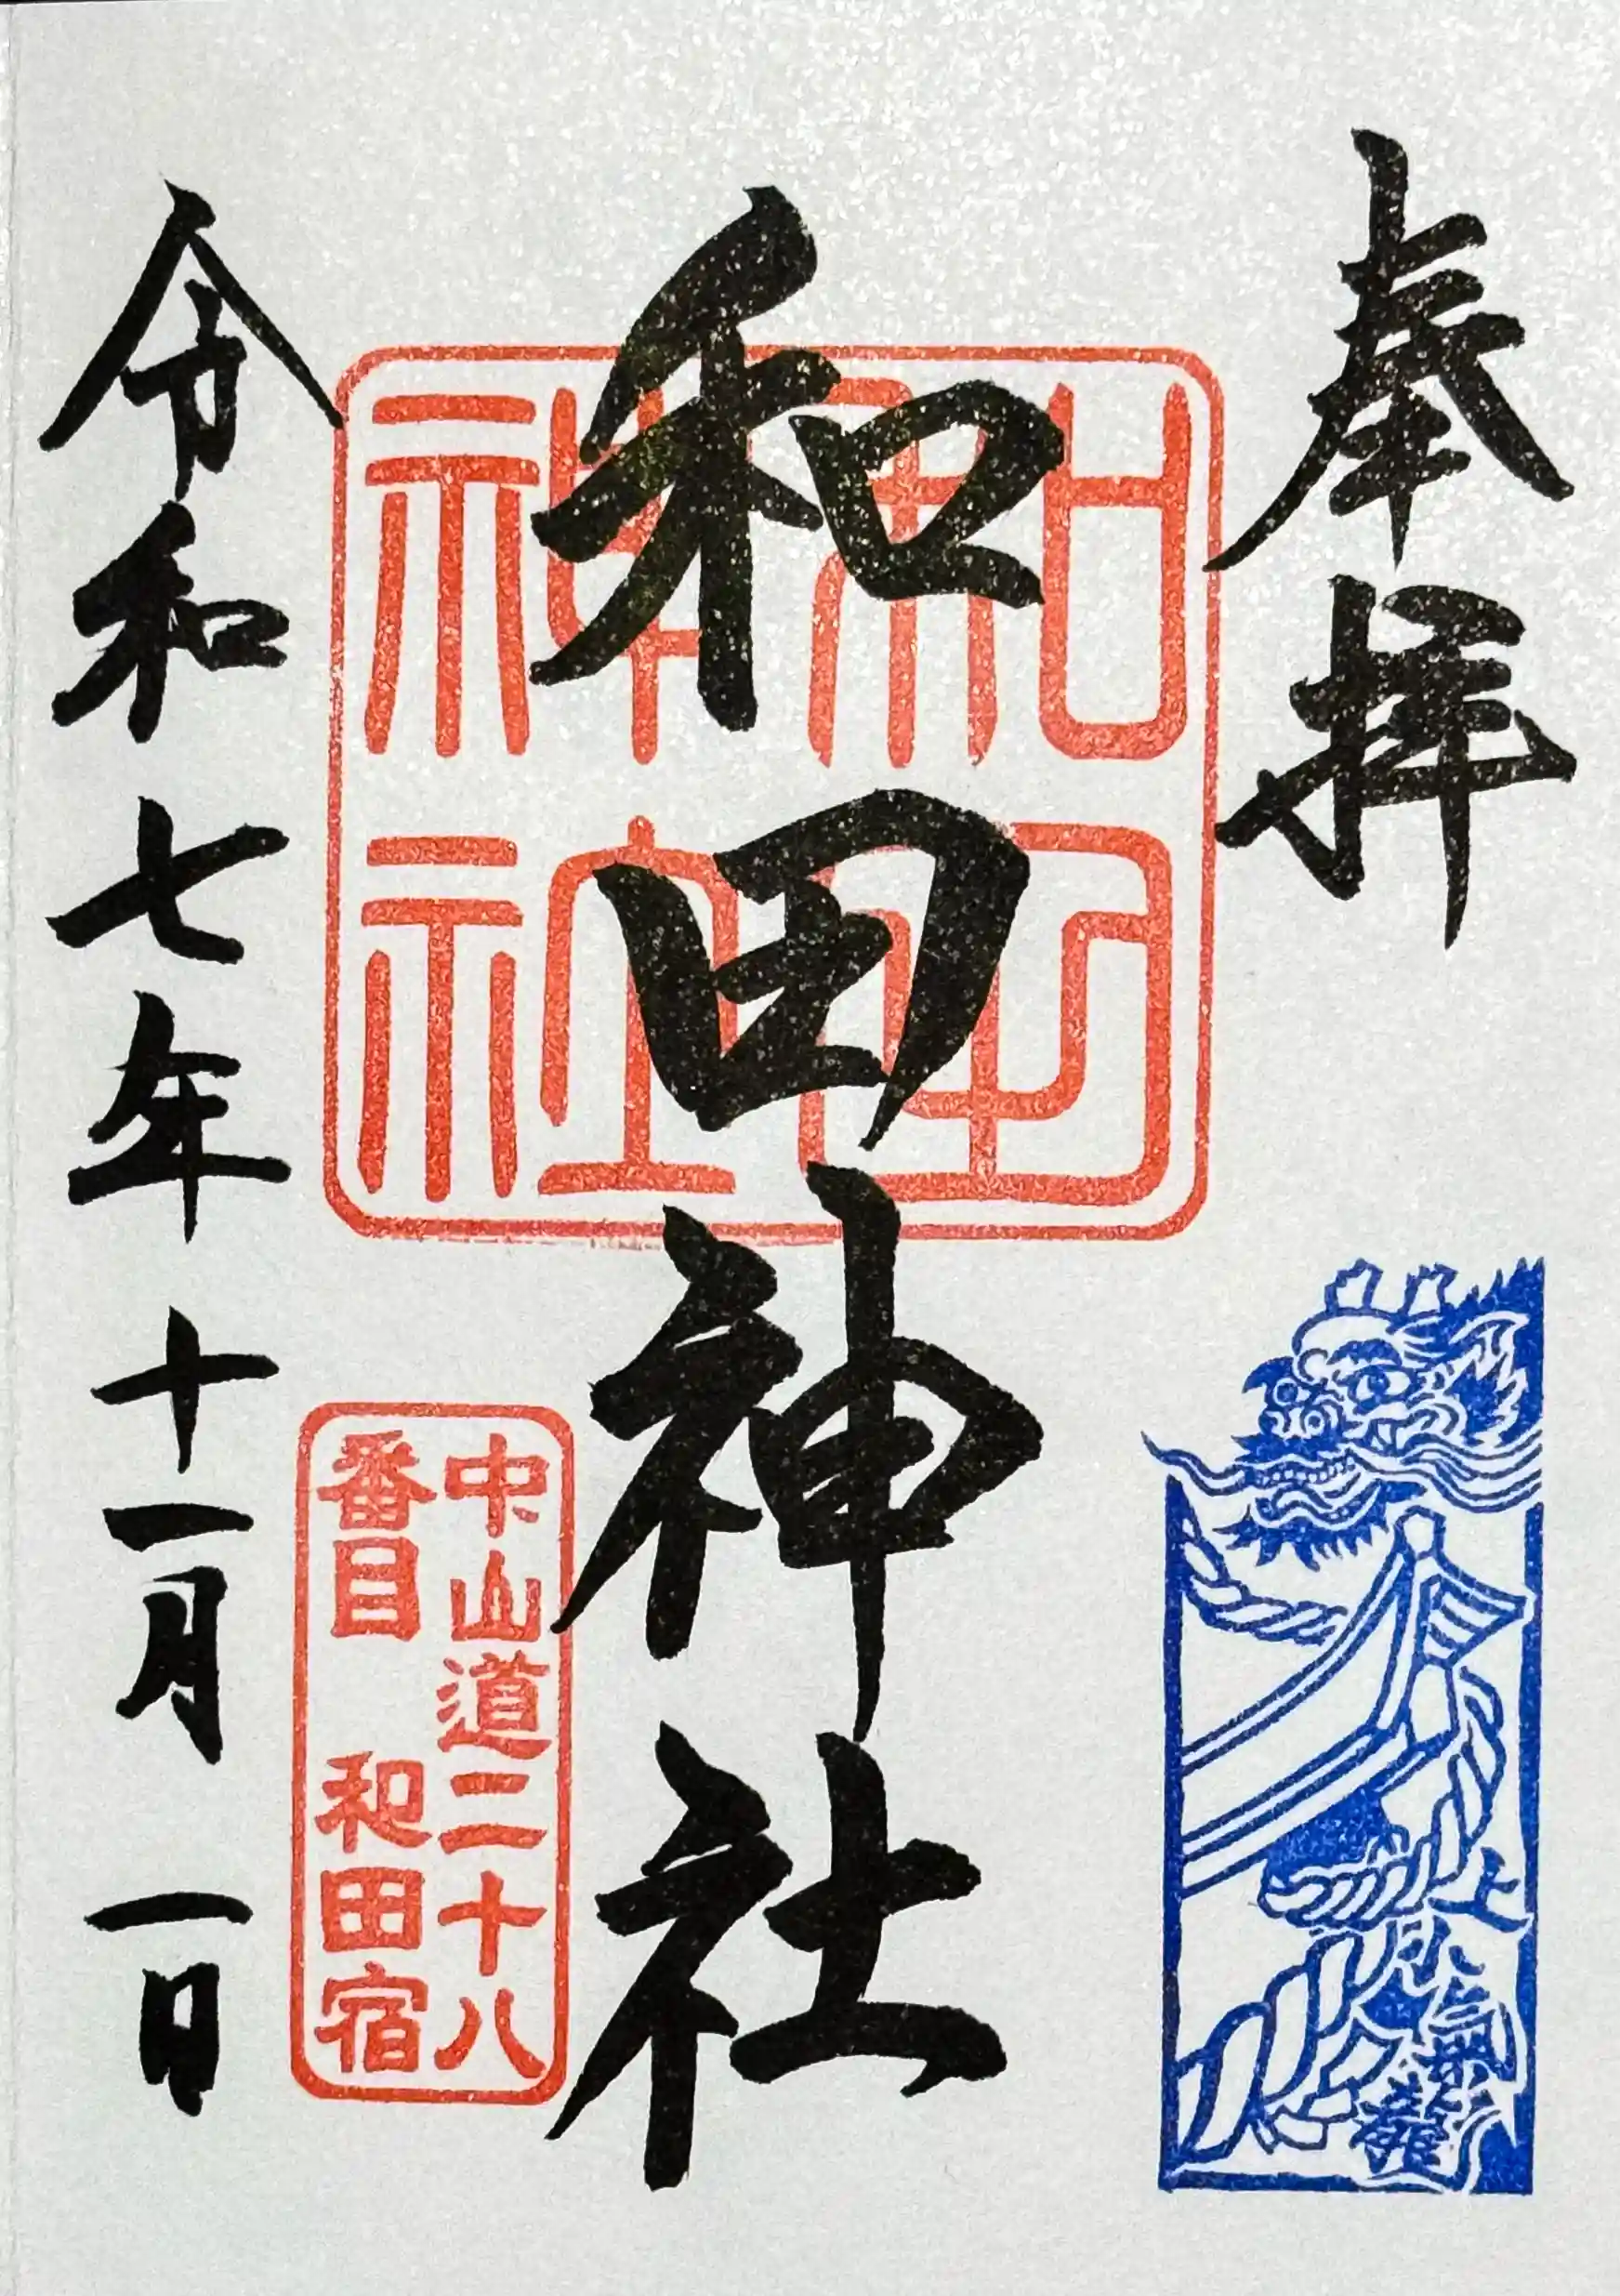 奉拝
和田神社
和田神社
中山道二十八
番目 和田宿
令和七年十一月一日